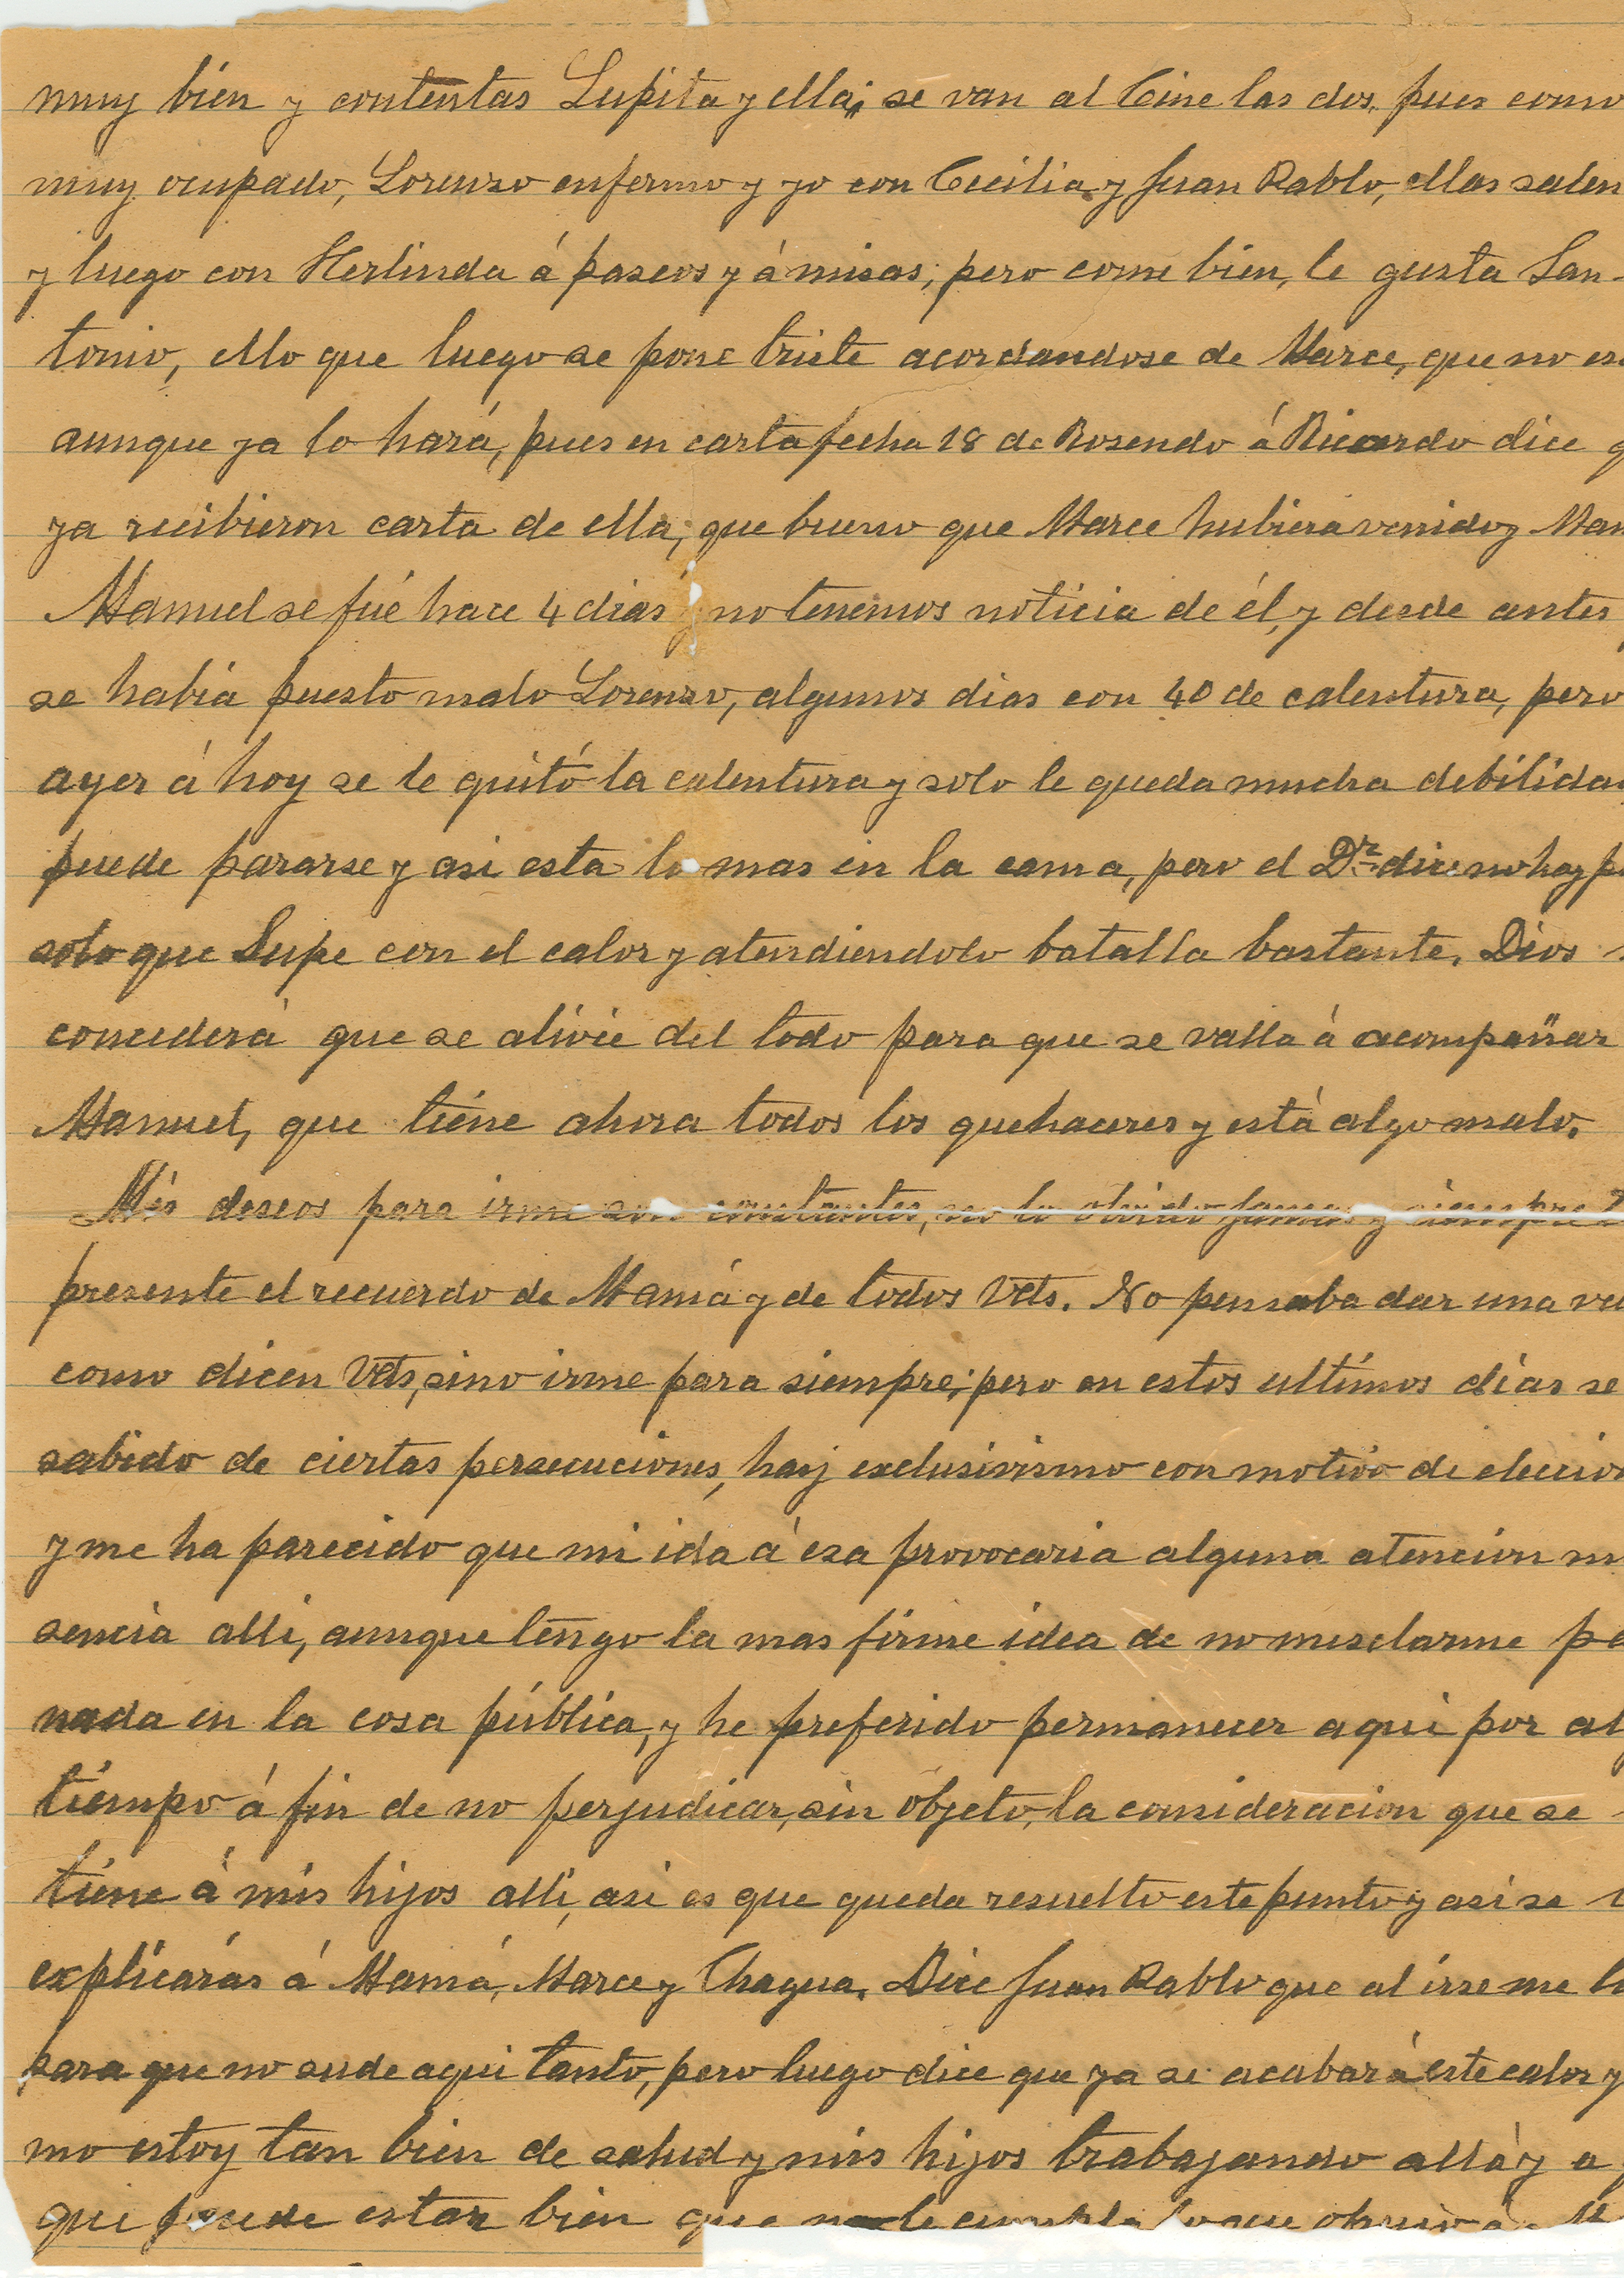 muy bién y contentas Lupita y ella; se van al Cine las dos, pues como
muy ocupado, Lorenzo enfermo y yo con Cecilia y Juan Pablo, ellas salen
y luego con Herlinda á paseos y á misas; pero come bien, le gusta San-
tonio, ello que luego se pone triste acordandose de Marce, que no es
aunque ya lo hará, pues en carta fecha 18 de Rosendo á Ricardo dice q
ya recibieron carta de ella; que bueno que Marce hubiera venido y Mam
Manuel se fué hace 4 dias y no tenemos noticia de él, y desde antes
se habia puesto malo Lorenzo, algunos dias con 40 de calentura, pero
ayer á hoy se le quitó la calentura y solo le queda mucha debilidad
puede pararse y asi esta lo mas en la cama, pero el Dr. dice no hay p
solo que Lupe con el calor y atendiendolo batalla bastante. Dios
concederá que se alivie del todo para que se valla á acompañar
Manuel, que tiéne ahora todos los quehaceres y está algo malo.
Mis deseos para irme son constantes, no lo olvido jamas y siempre
presente el recuerdo de Mamá y de todos Vds. No pensaba dar una vu
como dicen Vds, sino irme para siempre; pero en estos ultimos dias se
sabido de ciertas persecuciones, hay exclusivismo con motivo de eleccio
y me ha parecido que mi ida á esa provocaria alguna atencion m
sencia alli, aunque tengo la mas firme idea de no mesclarme pa
nada en la cosa pública, y he preferido permanecer aqui por al
tiempo á fin de no perjudicar, sin objeto, la consideracion que se
tiene á mis hijos alli, asi es que queda resuelto este punto y asi se l
explicarás á Mamá, Marce y Chagua. Dice Juan Pablo que al irse me l
para que no sude aqui tanto, pero luego dice que ya se acabará este calor y
mo estoy tan bien de salud y mis hijos trabajando allá y a
que puede estar bien que